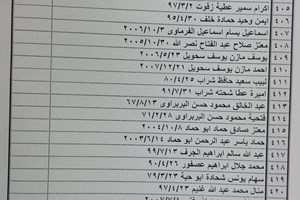 ٤٠٥ اكرام سمير عطية زقوت ٩٧/٣/٢
٤٠٦ ايمن وحيد حمادة خلف ٩٥/٤/٣٠
٤٠٧ اسماعيل بسام اسماعيل الفرماوي ٢٠٠٦/١٠/٣
٤٠٨ معتز صلاح عبد الفتاح نصر الله ٢٠٠٥/١٠/٣٠
٤٠٩ يوسف مازن يوسف سحويل ٢٠٠٦/٥/٢٣
٤١٠ احمد مازن يوسف سحويل ٢٠٠٧/١٢/٢١
٤١١ لبيب سعيد حافظ شراب ٨٠/٤/٢٥
٤١٢ اميرة عطا شحته شراب ٩١/٥/٢
٤١٣ عبد الخالق محمود حسن البربراوي ٦٧/٨/١٣
٤١٤ فتحية محمود حسن البربراوي ٧١/٢/٢٨
٤١٥ معتز صادق حماد ابو حماد ٢٠٠٤/١٠/٨
٤١٦ حماد ياسر عبد الرحمن ابو حماد ٢٠٠٣/٦/١٤
٤١٧ عبد الله سالم ابراهيم الجرف ٩٩/٧/١٣
٤١٨ محمد جلال ابراهيم عصفور ٩٠/٤/٢٦
٤١٩ سهام يونس شحادة ابو حية ٧٩/٣/٣١
٤٢٠ منال محمد عبد الله غنيم ٩٧/٤/٢٣